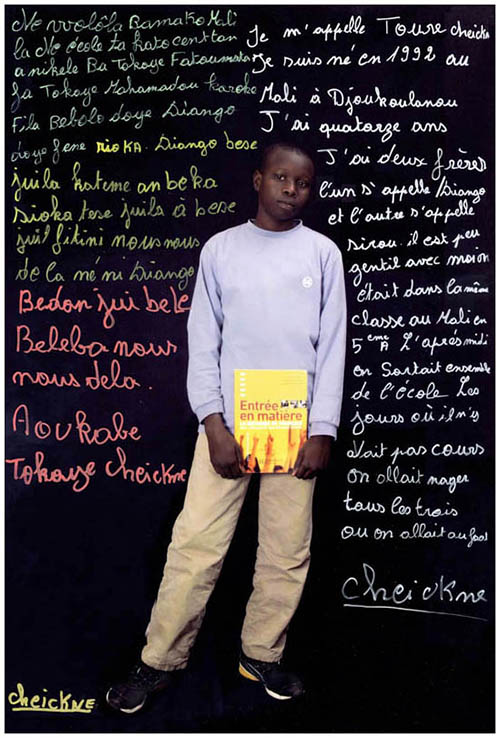 Ne wolôla Bamako Mali
la Ne école ta kato cent tan
a nikele Ba Tokoye Fatoumata
fa Tokoye Mahamadou karoke
Fila Bebolo doye Diango
doye fene sioka. Diango bese
juila kateme an beka
sioka tese juila à bese
juil fitini nous nous
de la né ni Diango
Bedon jui bele
Beleba nous
nous dela.
Aou kabe
Tokoye cheickne
Je m'appelle Toure cheickn
Je suis né en 1992 au
Mali à Djoukoulanou
J'ai quatorze ans
J'ai deux frères
l'un s'appelle Diango
et l'autre s'appelle
sirou. il est peu
gentil avec moi on
était dans la même
classe au Mali en
5ème A L'après midi
on Sortait ensemble
de l'école Les
jours où il n'y
avait pas cours
on allait nager
tous les trois
ou on allait au foot
cheickne
Entrée
en matière
cheickne